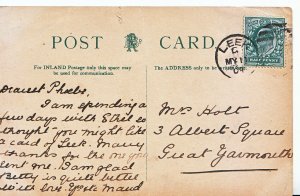 POST CARD.
For INLAND Postage only this space may be used for communication.
The ADDRESS only to be written here.
LEEK
MY 1
HALFPENNY
Dearest Phoebe,
I am spending a
few days with Ethel so
thought you might like
a card of Leek. Many
thanks for the one you
sent me. Am glad
Betty is quite better
with love Yrs Maud
Mrs Holt
3 Albert Square
Great Yarmouth